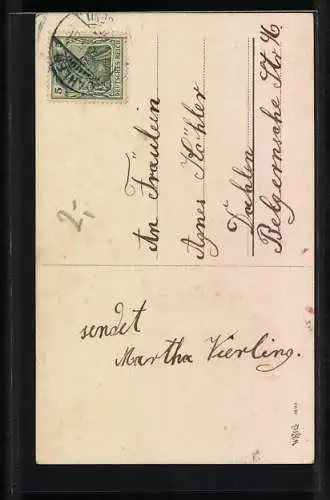 An Fräulein
Agnes Köhler
Dahlen
Belgernsche Str.
sendet
Martha Vierling.
2,-
DEUTSCHES REICH
5
DAHLEN